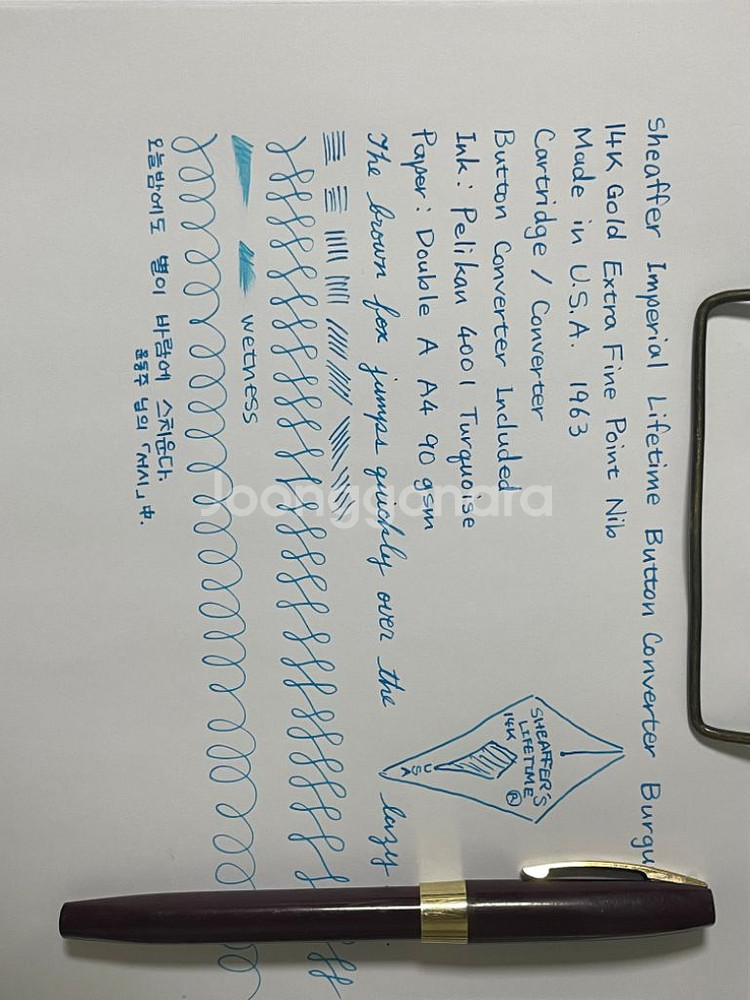 Sheaffer Imperial Lifetime Button Converter Burgu
14K Gold Extra Fine Point Nib
Made in U.S.A. 1963
Cartridge / Converter
Button Converter Included
Ink: Pelikan 4001 Turquoise
Paper: Double A A4 90 gsm
SHEAFFER'S
LIFETIME ®
14K
USA
The brown fox jumps quickly over the lazy
wetness
오늘밤에도 별이 바람에 스치운다.
윤동주 님의 「서시」 中.
Joonggonara